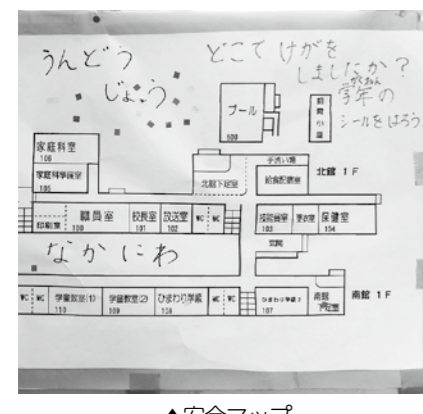 うんどう
じょう
どこで けがを
しましたか?
がくねん
学年の
シールをはろう
プール
500
家庭科室
106
家庭科準備室
105
手洗い場
北館下足室
給食配膳室
北館 1F
印刷室
職員室
100
校長室
101
放送室
102
WC
WC
103
更衣室
保健室
104
玄関
なかにわ
WC
WC
学童教室(1)
110
学童教室(2)
109
ひまわり学級
108
WC
WC
ひまわり学級2
107
南館
下足室
南館 1F
▲安全マップ